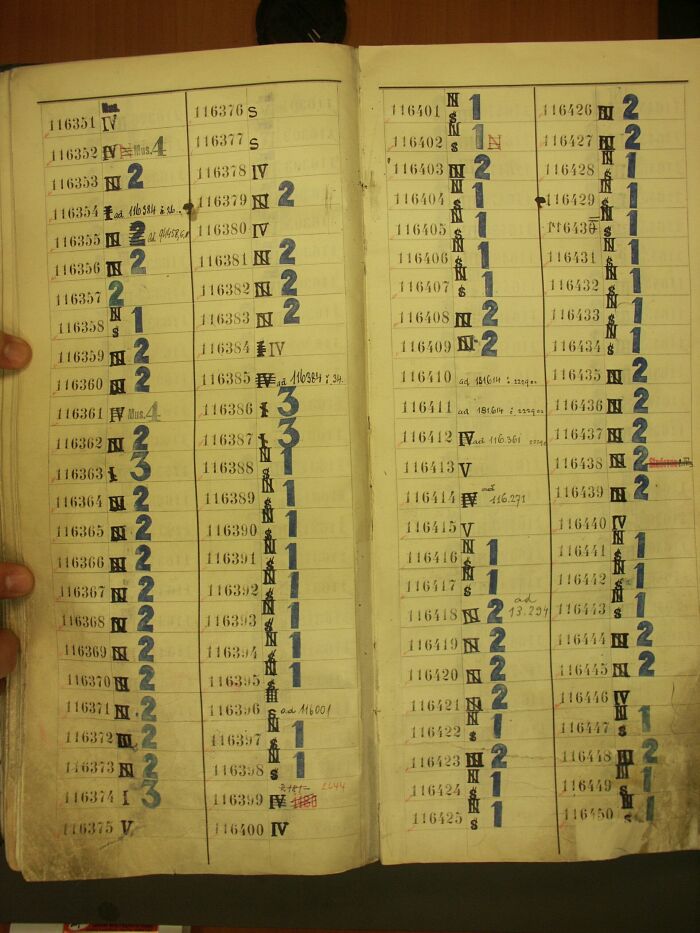 Mus.
116351 IV
116352 IV N Mus. 4
116353 N 2
116354 I ad 116384 i 36.
116355 N 2 ad
116356 N 2
116357 2
116358 N S 1
116359 N 2
116360 N 2
116361 IV Mus. 4
116362 N 2
116363 I 3
116364 N 2
116365 N 2
116366 N 2
116367 N 2
116368 N 2
116369 N 2
116370 N 2
116371 N 2
116372 2
116373 N 2
116374 I 3
116375 V
116376 S
116377 S
116378 IV
116379 N 2
116380 IV
116381 N 2
116382 N 2
116383 N 2
116384 I IV
116385 IV ad 116384 i. 34.
116386 I 3
116387 I 3
116388 N S 1
116389 N S 1
116390 N S 1
116391 N S 1
116392 N S 1
116393 N S 1
116394 N S 1
116395 N S 1
116396 III S ad 116001
116397 N S 1
116398 N S 1
116399 IV
116400 IV
116401 N S 1
116402 N S 1 N
116403 N 2
116404 N S 1
116405 N S 1
116406 N S 1
116407 N S 1
116408 N 2
116409 N 2
116410 ad 181614 i. 2229
116411 ad 181614 i. 2229
116412 IV ad 116.361
116413 V
116414 IV ad 116.271
116415 V
116416 N S 1
116417 N S 1
116418 N 2 ad 13.294
116419 N 2
116420 N 2
116421 N 2
116422 N S 1
116423 N 2
116424 N S 1
116425 N S 1
116426 N 2
116427 N 2
116428 N S 1
116429 N S 1
116430 N S 1
116431 N S 1
116432 N S 1
116433 N S 1
116434 N S 1
116435 N 2
116436 N 2
116437 N 2
116438 N 2
116439 N 2
116440 IV
116441 N S 1
116442 N S 1
116443 N S 1
116444 N 2
116445 N 2
116446 IV
116447 N S 1
116448 N 2
116449 N S 1
116450 N S 1